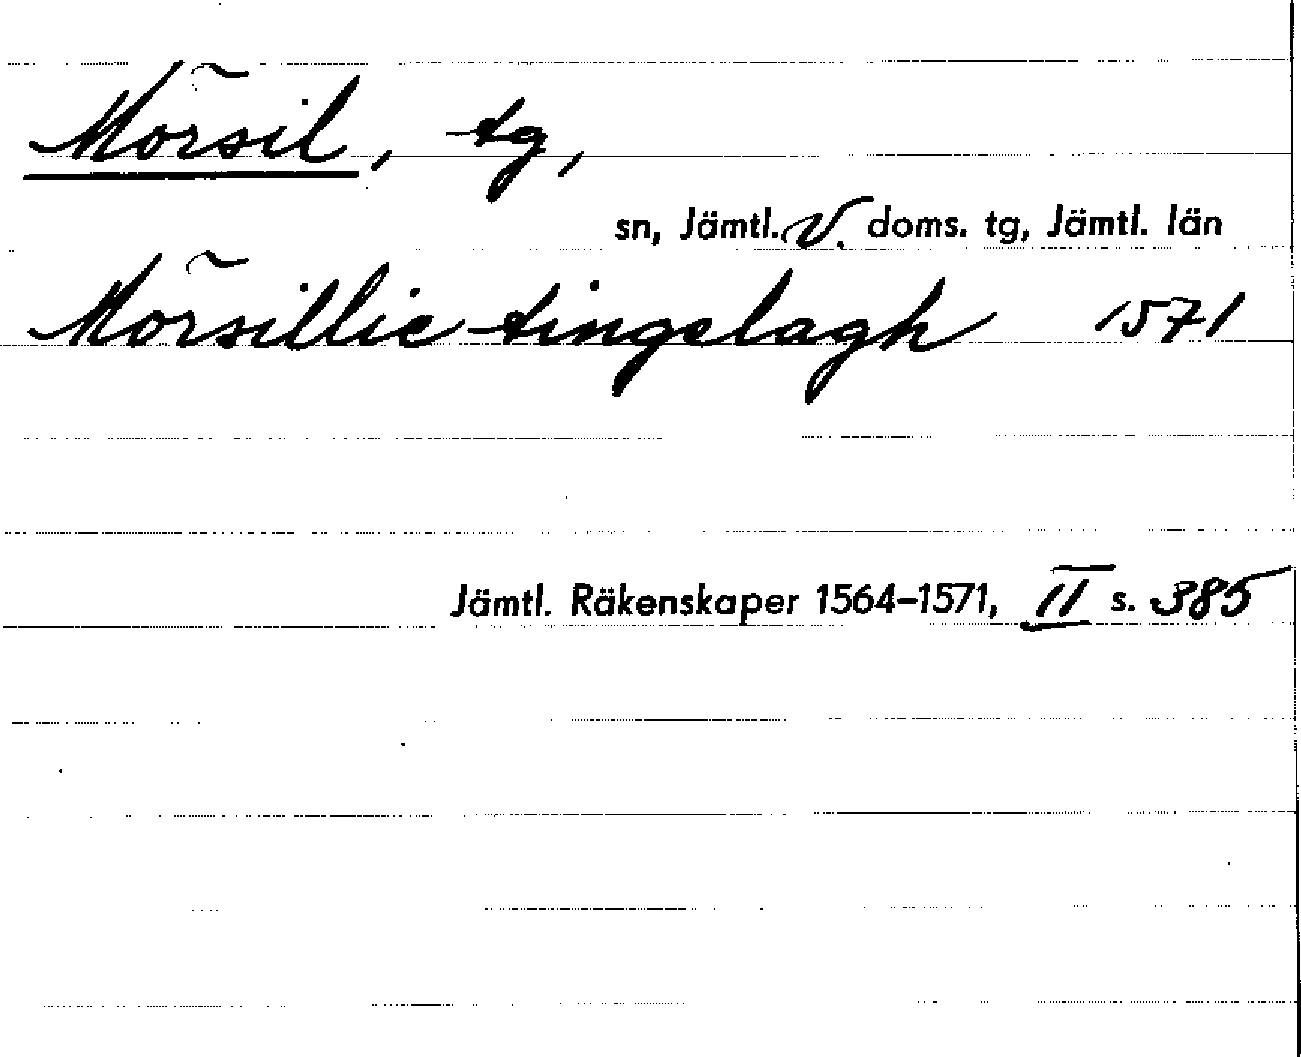 Mörsil, tg,
sn, Jämtl. V. doms. tg, Jämtl. län
Mörsillie tingelagh 1571
Jämtl. Räkenskaper 1564-1571, II s. 385